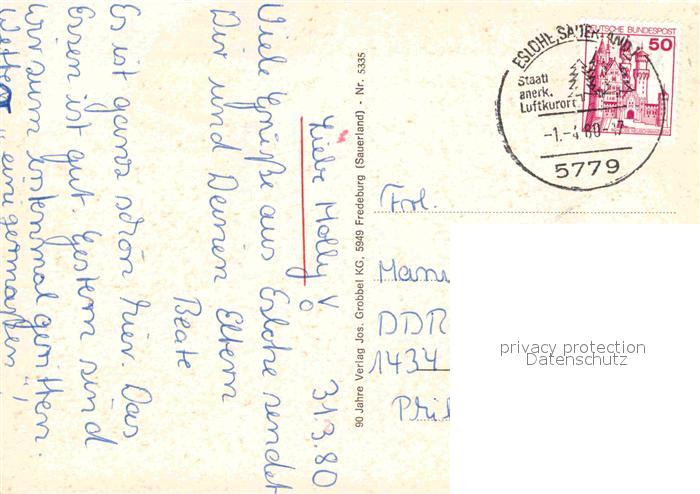 31.3.80
Liebe Molly!
Viele Grüße aus Eslohe sendet
Dir und Deinen Eltern
Beate
Es ist ganz schön hier. Das
Essen ist gut. Gestern sind
wir zum erstenmal geritten.
Wetter "einigermaßen"
90 Jahre Verlag Jos. Grobbel KG, 5949 Fredeburg (Sauerland) - Nr. 5335
ESLOHE, SAUERLAND
Staatl
anerk.
Luftkurort
-1.-4.80-
5779
DEUTSCHE BUNDESPOST
50
Frl.
Manu
DDR
1434
privacy protection
Datenschutz